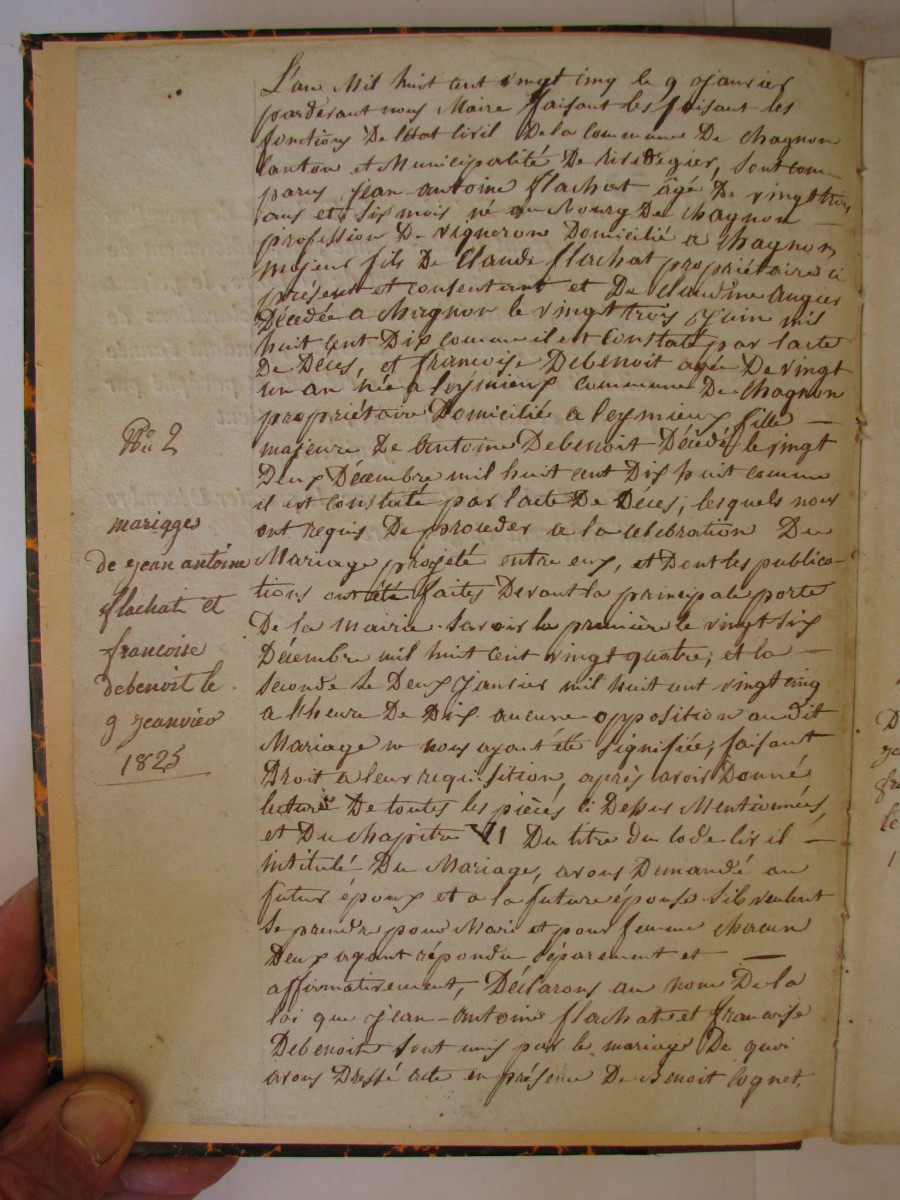 No 2
mariage
de jean antoine
flachat et
francoise
debenoit le
9 jeanvier
1825
L'an Mil huit cent vingt cinq le 9 janvier
pardevant nous Maire faisant les faisant les
fonctions De l'état Civil De la commune De Chagnon
Canton et Municipalité De rivedegier, sont com-
parus jean antoine flachat âgé De vingt trois
ans et six mois né au Bourg De Chagnon
profession De vigneron Domicilié a Chagnon,
majeur fils De Claude flachat propriétaire ci
présent et consentant et De Claudine augier
Décédée a chagnon le vingt trois juin mil
huit cent Dix comme il est constaté par l'acte
De Décès, et francoise Debenoit agée De vingt
un an née a leysmieux commune De Chagnon
propriétaire Domicilié a leysmieux fille —
majeure De antoine Debenoit Décédé le vingt
Deux Décembre mil huit cent Dix huit comme
il est constaté par l'acte De Deces, lesquels nous
ont requis De proceder a la celebration Du
Mariage projeté entre eux, et Dont les publica-
tions ont été faites Devant la principale porte
De la mairie. Savoir la première le vingt six
Décembre mil huit cent vingt quatre, et la —
seconde le Deux janvier mil huit cent vingt cinq
a l'heure De Dix. aucune opposition au dit
Mariage ne nous ayant été signifiée, faisant
Droit a leur requisition, après avoir Donné
lecture De toutes les pièces ci Depus Mentionnées,
et Du chapitre VI Du titre du Code Civil —
intitulé Du Mariage, avons Demandé au
futur époux et a la future épouse s'il veulent
se prendre pour Mari et pour femme chacun
Deux ayant répondu séparement et —
affirmativement, Déclarons au nom De la
loi que jean-antoine flachat et francoise
Debenoit sont unis par le mariage De quoi
avons Dressé acte en présence De Benoit Cognet,